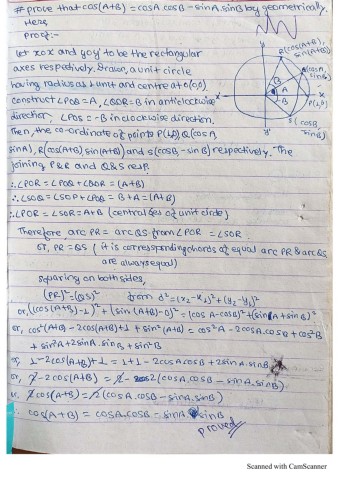 # prove that cos(A+B) = cosA.cosB - sinA.sinB by geometrically.
Here,
Proof:-
let xox' and yoy' to be the rectangular
axes respectively. Drawn, a unit circle
having radius as 1 unit and centre at O(0,0)
construct ∠POQ = A, ∠QOR = B in anticlockwise
direction, ∠POS = -B in clockwise direction.
Then, the co-ordinate of points P(1,0), Q(cosA,
sinA), R(cos(A+B) sin(A+B)) and S(cosB - sinB) respectively. The
joining P&R and Q&S resp.
∴ ∠POR = ∠POQ + ∠QOR = (A+B)
∴ ∠SOQ = ∠SOP + ∠POQ = B+A = (A+B)
∴ ∠POR = ∠SOR = A+B (central ∠es of unit circle)
Therefore arc PR = arc QS from ∠POR = ∠SOR.
or, PR = QS ( it is corresponding chords of equal arc PR & arc QS
are always equal)
squaring on both sides,
(PR)² = (QS)² from d² = (x₂ - x₁)² + (y₂ - y₁)²
or, (cos(A+B) - 1)² + (sin (A+B) - 0)² = (cosA - cosB)² + (sinA + sinB)²
or, cos²(A+B) - 2cos(A+B) + 1 + sin²(A+B) = cos²A - 2cosA.cosB + cos²B
+ sin²A + 2sinA.sinB + sin²B
or, 1 - 2cos(A+B) + 1 = 1 + 1 - 2cosA.cosB + 2sinA.sinB
or, 2 - 2cos(A+B) = 2 - 2(cosA.cosB - sinA.sinB)
or, 2cos(A+B) = 2(cosA.cosB - sinA.sinB)
∴ cos(A+B) = cosA.cosB - sinA.sinB
proved
R(cos(A+B), sin(A+B))
Q(cosA, sinA)
B
A
-B
x
P(1,0)
S(cosB, -sinB)
y'
Scanned with CamScanner